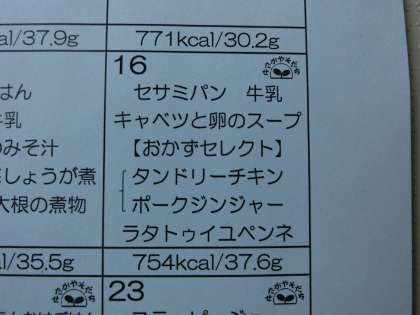 cal/37.9g
771kcal/30.2g
はん
牛乳
のみそ汁
しょうが煮
大根の煮物
al/35.5g
16
セサミパン 牛乳
キャベツと卵のスープ
【おかずセレクト】
タンドリーチキン
ポークジンジャー
ラタトゥイユペンネ
754kcal/37.6g
23